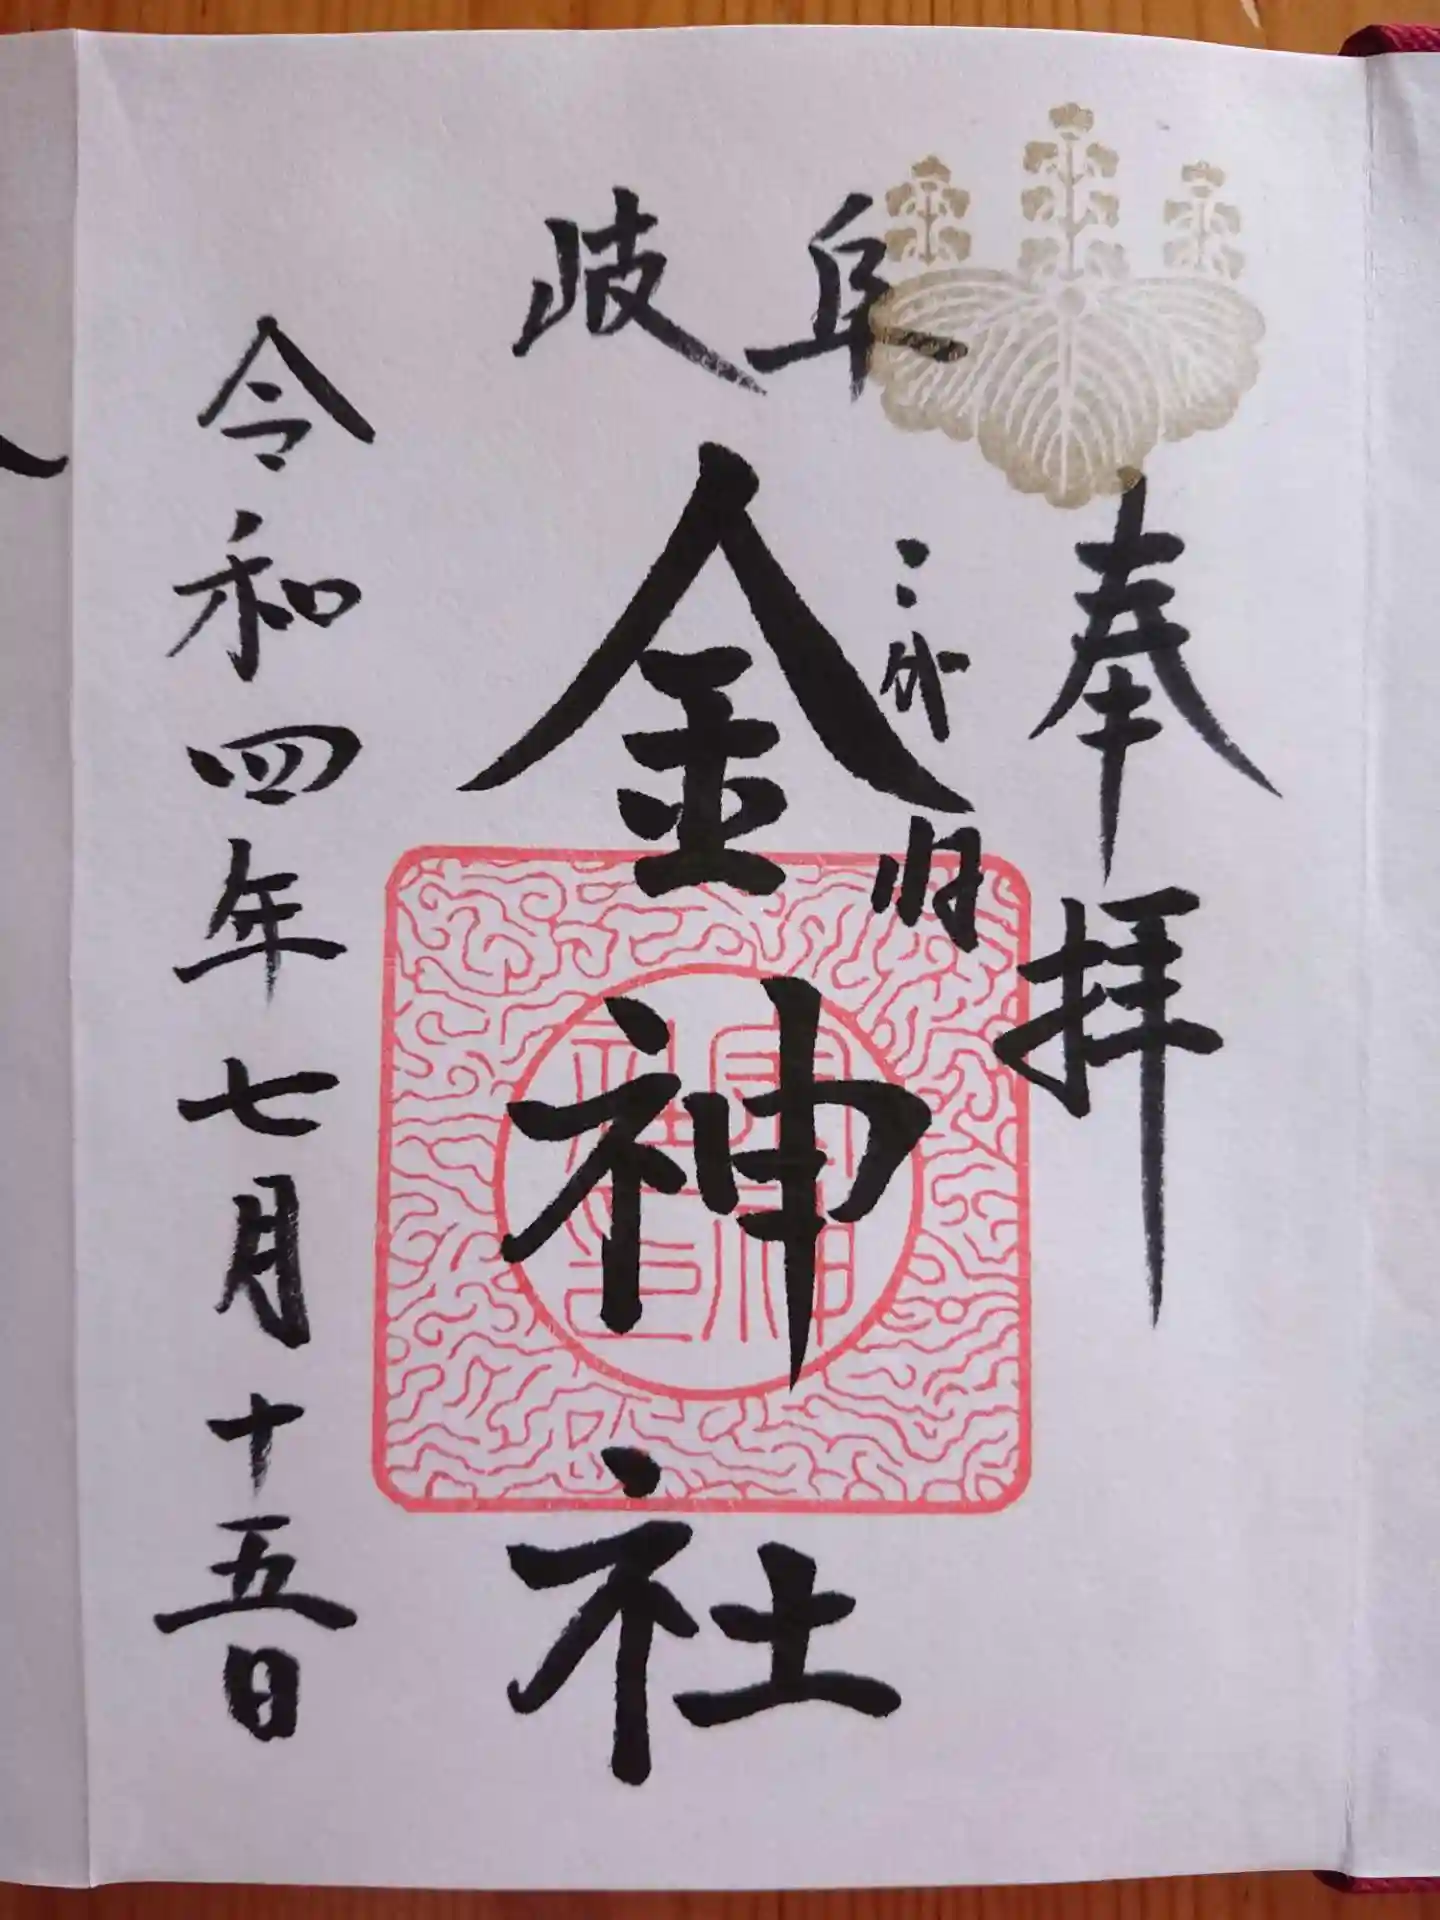 奉拝
岐阜
金神社
令和四年七月十五日